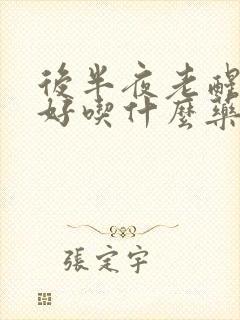 後半夜老醒
好喫什麼藥
張定宇